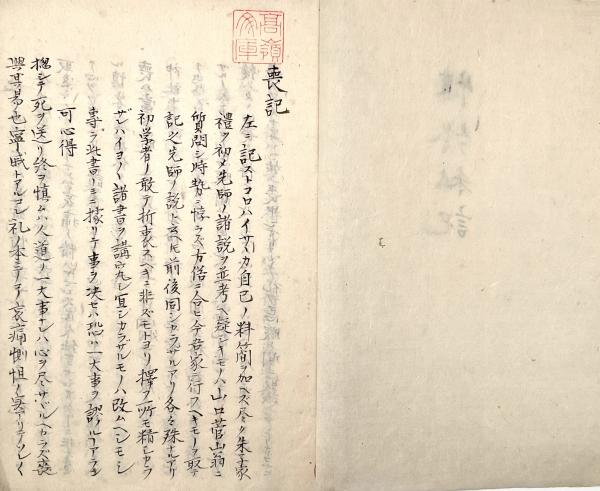 喪記
左ニ記ストコロハイサヽカ自己ノ料簡ヲ加ヘズ尽ク朱子家
禮ヲ初メ先師ノ諸説ヲ並考ヘ疑シキモノハ山口菅山翁ニ
質問シ時勢ニ悖ラズ方俗ニ合ヒ今吾家ニ行フヘキモノヲ取テ
記之先師ノ説ト云ヘドモ前後同シカラザルアリ各々殊ナルアリ
初学者ノ敢テ折衷スヘキニ非ズモトヨリ擇フ所モ精シカラ
ザレハイヨ〳〵諸書ヲ講究シ宜シカラザルモノハ改ムヘシモシ
専ラ此書ノミニ據リテ事ヲ决セハ恐ハ一大事ヲ誤ルヿアラン
可心得
摠シテ死ヲ送リ終ヲ慎ムハ人道ノ一大事ナレハ心ヲ尽サズバアルヘカラズ喪
與其易也寧戚トアルコレ礼ノ本ニテ哀痛惻怛ノ実アリテ
高嶺